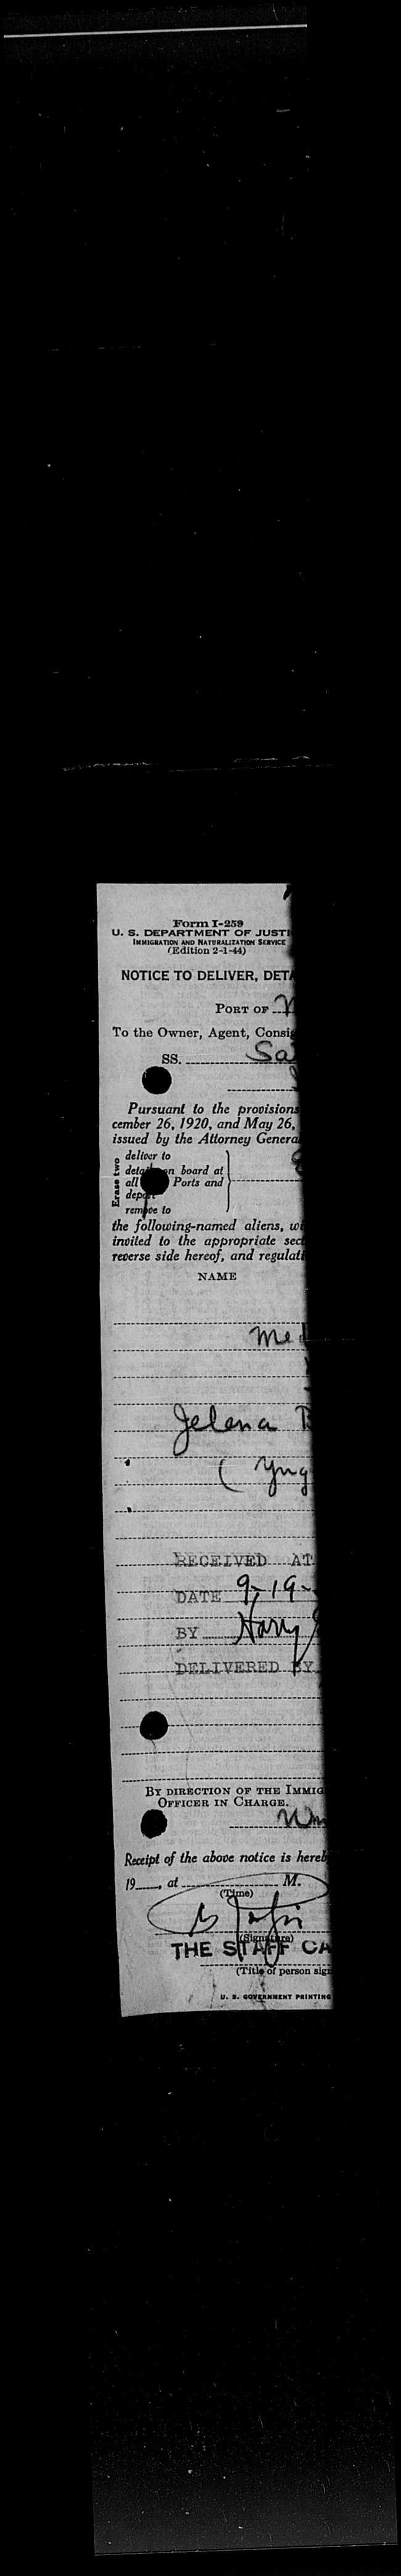 Form I-259
U. S. DEPARTMENT OF JUSTI
IMMIGRATION AND NATURALIZATION SERVICE
(Edition 2-1-44)
NOTICE TO DELIVER, DETA
PORT OF
To the Owner, Agent, Consig
SS. Sa
Pursuant to the provisions
cember 26, 1920, and May 26,
issued by the Attorney Genera
Erase two
deliver to
detain on board at
all Ports and
deport
remove to
the following-named aliens, wi
invited to the appropriate sect
reverse side hereof, and regulati
NAME
Med
Jelena B
( Yug
RECEIVED AT
DATE 9-19-
BY Harry
DELIVERED BY
BY DIRECTION OF THE IMMIG
OFFICER IN CHARGE.
Wm
Receipt of the above notice is hereb
19____, at ____ M.
(Time)
(Signature)
THE STAFF CA
(Title of person sign
U. S. GOVERNMENT PRINTING